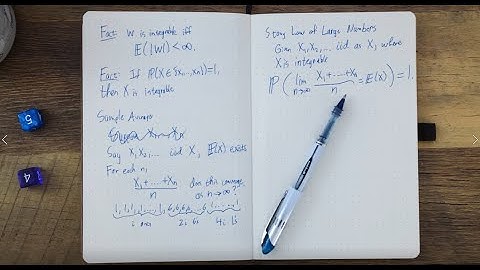 Fact: W is integrable iff
E(|W|) < ∞.
Fact: If P(X ∈ {x₁,...,xₙ})=1,
then X is integrable
Sample Averages
Say X₁, X₂, ... iid X, E(X) exists
For each n,
X₁+....+Xₙ
n
does this converge
as n→∞??
Strong Law of Large Numbers
Given X₁, X₂, ... iid as X, where
X is integrable
P( lim n→∞ X₁+....+Xₙ / n = E(X) ) = 1.
5
4